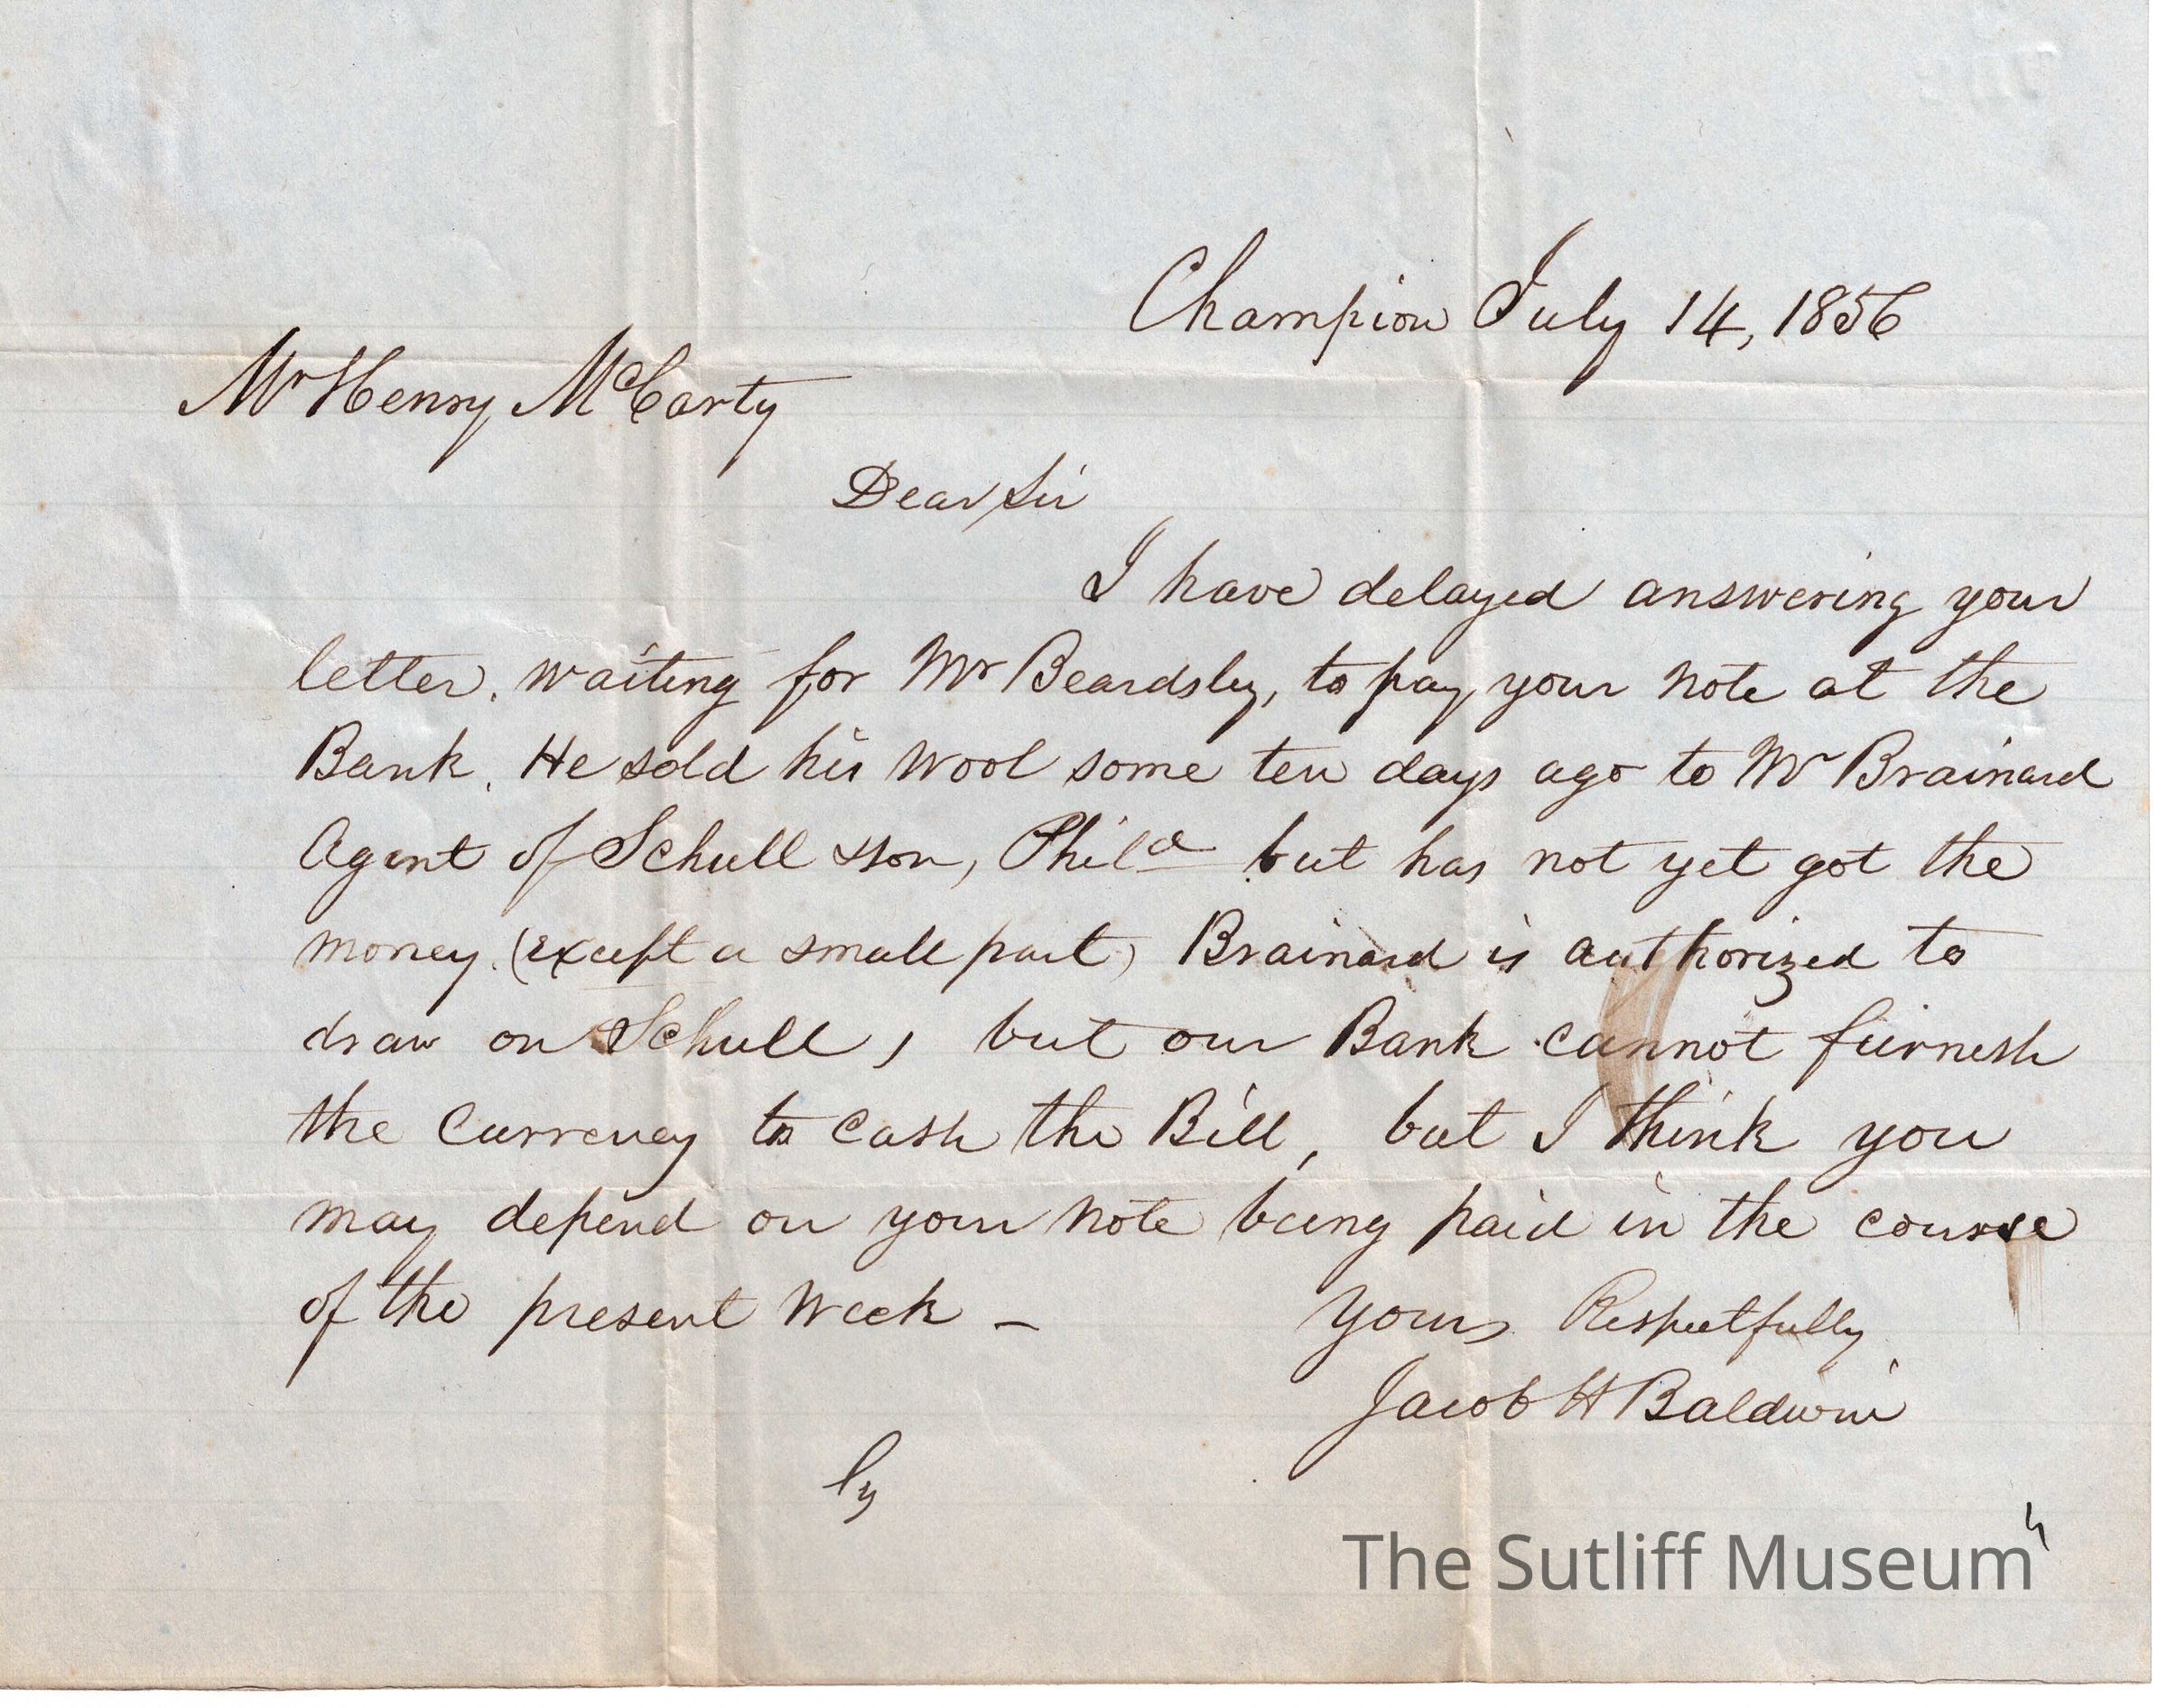 Champion July 14, 1856
Mr Henry McCarty
Dear Sir
I have delayed answering your
letter, waiting for Mr Beardsley, to pay your note at the
Bank. He sold his wool some ten days ago to Mr Brainard
Agent of Schull & Son, Phila but has not yet got the
money. (except a small part) Brainard is authorized to
draw on Schull, but our Bank cannot furnish
the Currency to Cash the Bill, but I think you
may depend on your note being paid in the course
of the present week –
Yours Respectfully
Jacob H Baldwin
The Sutliff Museum